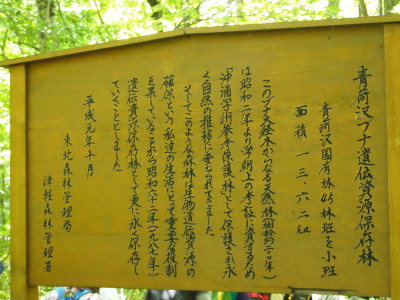 青荷沢ブナ遺伝資源保存林
青荷沢国有林45林班を小班
面積 一三・六二ha
このブナ天然木からなる天然林
は昭和二年より学術上の考証に資するため
「沖浦学術参考保護林」として保護され永
く自然の推移に委ねられてきました。
そしてこのような森林は生物遺伝資源の
確保という私達の生活にとって重要な役割
を果していることから昭和六十二年(一九八七年)
遺伝資源保存林として更に永く保存し
ていくこととしました
平成元年十月
東北森林管理局
津軽森林管理署